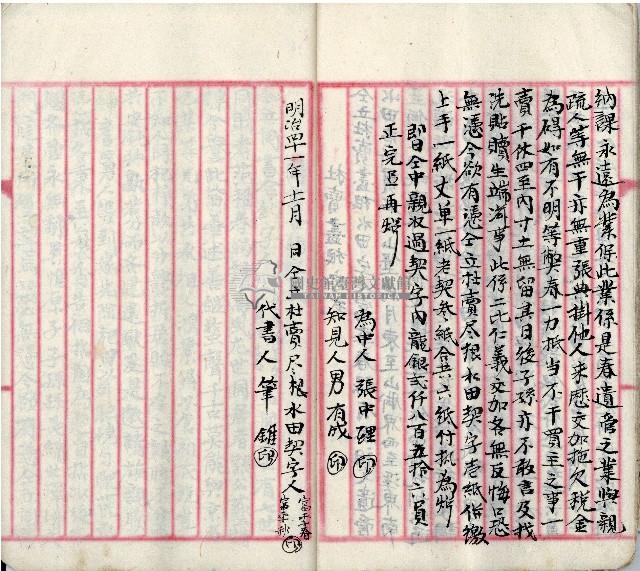 納課永遠為業保此業係是春遺管之業與親
疏人等無干亦無重張典掛他人來歷交加拖欠稅金
為碍如有不明等弊春一力抵当不干買主之事一
賣千休四至內寸土無留其日後子孫亦不敢言及找
洗貼贖生端滋事此係二比仁義交加各無反悔口恐
無憑今欲有憑仝立杜賣尽根水田契字壱紙俻繳
上手一紙丈单一紙老契叁紙合共六紙付执為炤
即日仝中親収過契字內龍銀弍仟八百五拾六員
正完足再炤
為中人 張中理 印
知見人男 有成 印
明治四十一年十一月 日仝立杜賣尽根水田契字人
代書人 筆 錐 印
國史館臺灣文獻館
TAIWAN HISTORICA